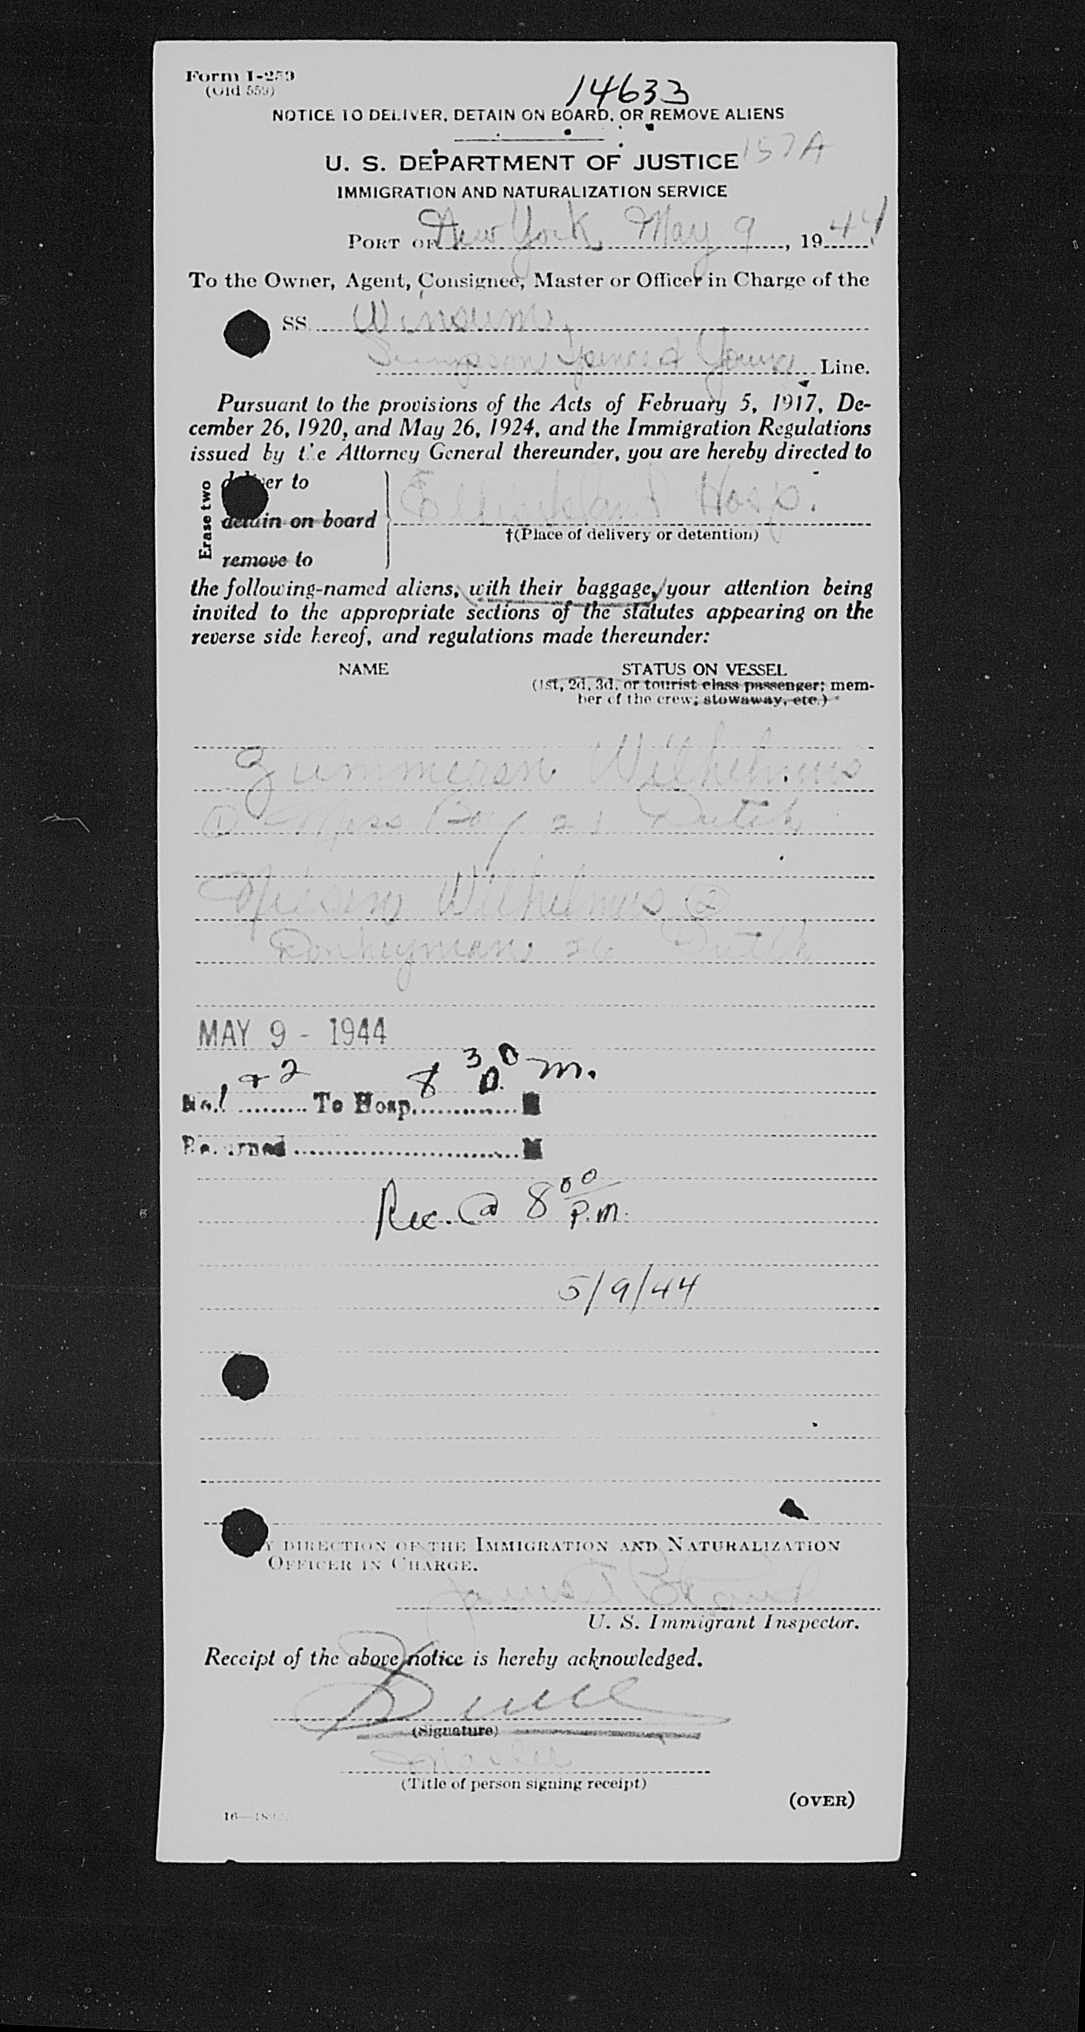 Form I-259
(Old 559)
14633
NOTICE TO DELIVER, DETAIN ON BOARD, OR REMOVE ALIENS
157A
U. S. DEPARTMENT OF JUSTICE
IMMIGRATION AND NATURALIZATION SERVICE
PORT OF New York, May 9, 1944
To the Owner, Agent, Consignee, Master or Officer in Charge of the
SS. Winsum,
Simpson Spence & Young Line.
Pursuant to the provisions of the Acts of February 5, 1917, De-
cember 26, 1920, and May 26, 1924, and the Immigration Regulations
issued by the Attorney General thereunder, you are hereby directed to
Erase two
deliver to
detain on board
remove to
Ellis Island Hosp.
†(Place of delivery or detention)
the following-named aliens, with their baggage, your attention being
invited to the appropriate sections of the statutes appearing on the
reverse side hereof, and regulations made thereunder:
NAME STATUS ON VESSEL
(1st, 2d, 3d, or tourist class passenger; mem-
ber of the crew; stowaway, etc.)
Wilhelmus
① Mess Boy 21 Dutch
Wilhelmus ②
Donkeyman 26 Dutch
MAY 9 - 1944
No. 1 & 2 To Hosp. 8 30 P.M.
Returned M
Rec. @ 8 00 P.M.
5/9/44
BY DIRECTION OF THE IMMIGRATION AND NATURALIZATION
OFFICER IN CHARGE.
James T.
U. S. Immigrant Inspector.
Receipt of the above notice is hereby acknowledged.
(Signature)
(Title of person signing receipt)
(OVER)